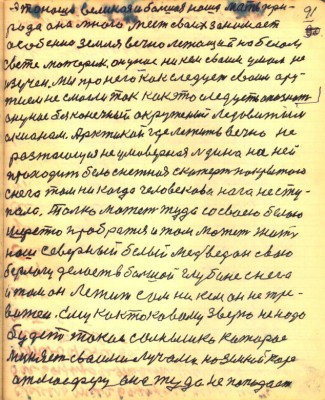 91
А то наша великая и большая наша мать при-
рода она много мест своих занимает
особенно земля вечно лежащий на белом
свете материк, он у нас ни кем своим умом не
изучен. Мы про него как следует своим ору-
жием не смогли так как это следует опознать
он у нас бяконечный окружоный Ледовитым
окианом. Арктикой где лежить вечно не
разтающая не умоверная льдина на ней
проходит белоснежная скатерт покрытого
снега там никогда человекова нога не сту-
пала. Только может туда со своею белою
шерстю пробратся и там может жить
наш северный белый медведь он свою
берлогу делает в большой глубине снега
и там он лежит сам ни кем он не тре-
вожен. Ему как таковому зверю не надо
будет такое солнышко которое
меняет своими лучами на зимний
атмосферу она туда не попадает